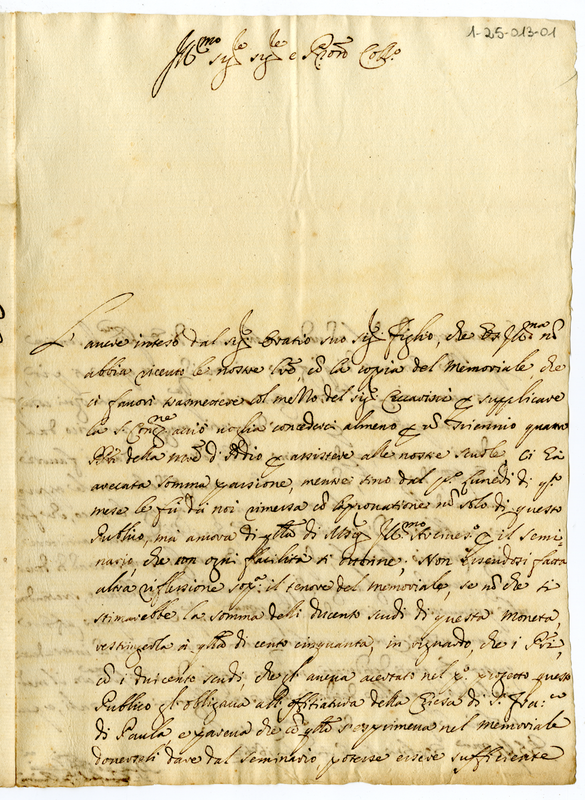 1-25-013-01
Ill.mo Sig.r Sig.r e P.ron Coll.o
L'avere inteso dal Sig.r Oratio suo Sig.r figlio, che V.S. Ill.ma nõ
abbia ricevuto le nostre l're, cõ la copia del memoriale che
ci favorì trasmettere col mezzo del Sig.r Ceccarini p supplicare
la S. Cong.ne acciò voglia concederci almeno p un triennio quattro
della m're d'Iddio p assistere alle nostre scuole, ci hà
arrecata somma passione, mentre sino dal p.o lunedì di q.to
mese le fù da noi rimessa cõ l'aprovatione nõ solo di questo
Publico, mà ancora di q.lla di Mõsig. Ill.mo p il semi-
nario, che con ogni facilità si ottenne; Non essendosi fatta
altra riflessione sop.a il tenore del memoriale, se nõ che si
stimarebbe la somma deli ducento scudi di questa moneta,
restringerla à q.lla di cento cinquanta, in riguardo, che i P'ri,
cõ i duicento scudi, che gl'aveva accordati nel p.o progetto questo
Publico gl'obligava all'offitiatura della Chiesa di S. Fra.co
di Paula e pareva che cõ q.lla s'esprimeva nel memoriale
doverseli dare dal seminario potesse essere sufficiente